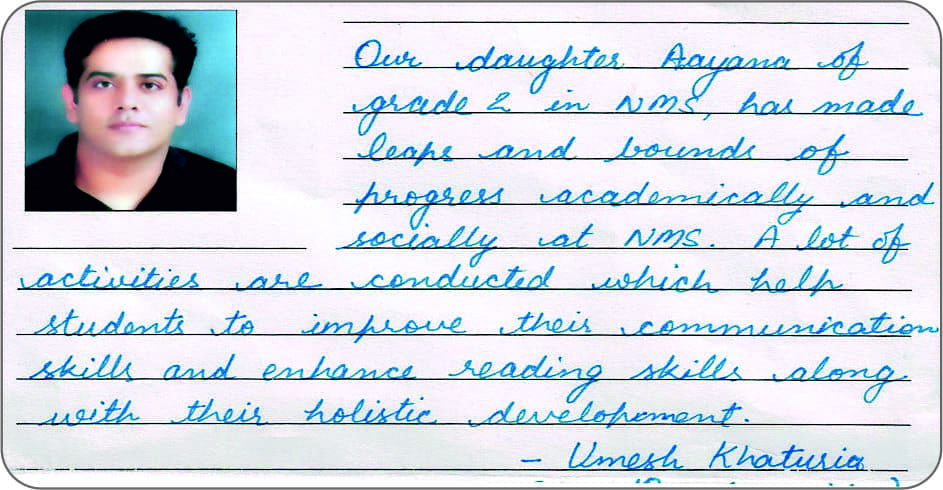 Our daughter Aayana of
grade 2 in NMS, has made
leaps and bounds of
progress academically and
socially at NMS. A lot of
activities are conducted which help
students to improve their communication
skills and enhance reading skills along
with their holistic development.
- Umesh Khaturia